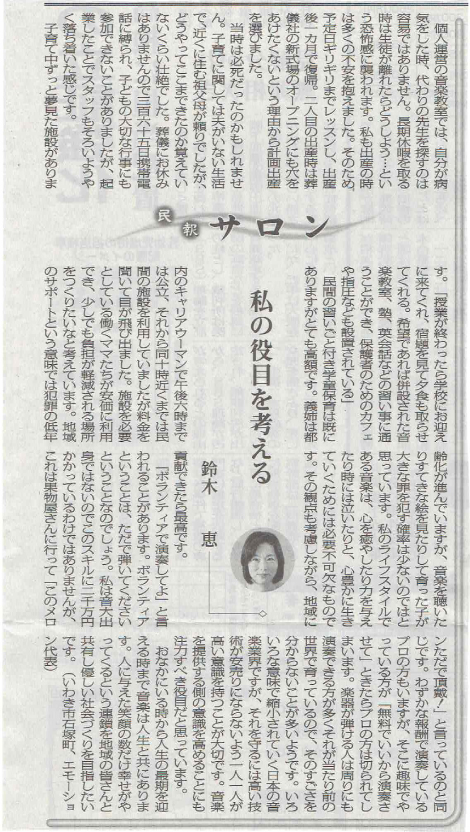 民報サロン
私の役目を考える
鈴木　恵
　個人運営の音楽教室では、自分が病
気をした時、代わりの先生を探すのは
容易ではありません。長期休暇を取る
時は生徒が離れたらどうしよう…とい
う恐怖感に襲われます。私も出産の時
は多くの不安を抱えました。そのため、
予定日ギリギリまでレッスンし、出産
後一カ月で復帰。二人目の出産時は葬
儀社の新式場のオープニングにも穴を
あけたくないという理由から計画出産
を選びました。
　当時は必死だったのかもしれませ
ん。子育てに関しては夫がいない生活
で、近くに住む祖父母が頼りでしたが、
どうやってここまできたのか覚えてい
ないくらい壮絶でした。葬儀にお休み
はありませんので三百六十五日携帯電
話に縛られ、子どもの大切な行事にも
参加できないことがありましたが、起
業したことでスタッフもそろいようや
く落ち着いた感じです。
　子育て中ずっと夢見た施設がありま
す。「授業が終わったら学校にお迎え
に来てくれ、宿題を見て夕食も取らせ
てくれる。希望であれば併設された音
楽教室、塾、英会話などの習い事に通
うことができ、保護者のためのカフェ
や指圧なども設置されている」
　民間の習いごと付き学童保育は既に
ありますがとても高額です。義姉は都
内のキャリアウーマンで午後六時まで
は公立、それから同十時近くまでは民
間の施設を利用していましたが料金を
聞いて目が飛び出ました。施設を必要
としている働くママたちが安価に利用
でき、少しでも負担が軽減される場所
をつくりたいなと考えています。地域
のサポートという意味では犯罪の低年
齢化が進んでいますが、音楽を聴いた
りすてきな絵を見たりして育った子が
大きな罪を犯す確率は少ないのではと
思っています。私のライフスタイルで
ある音楽は、心を癒やしたり力を与え
たり時には泣いたりと、心豊かに生き
ていくためには必要不可欠なもので
す。その観点も考慮しながら、地域に
貢献できたら最高です。
　「ボランティアで演奏してよ」と言
われることがあります。ボランティア
ということは、ただで弾いてください
ということなのでしょう。私は音大出
身ではないのでこのスキルに二千万円
かかっているわけではありませんが、
これは果物屋さんに行って「このメロ
ンただで頂戴！」と言っているのと同
じです。わずかな報酬で演奏している
プロの方もいますが、そこに趣味でや
っている方が「無料でいいから演奏さ
せて」ときたらプロの方は切られてし
まいます。楽器が弾ける人は周りにも
演奏できる方が多くそれが当たり前の
世界で育っているので、そのすごさを
分からないことが多いようです。いろ
いろな意味で縮小されていく日本の音
楽業界ですが、それを守るには高い技
術が安売りにならないよう一人一人が
高い意識を持つことが大切です。音楽
を提供する側の意識を高めることにも
注力すべき役目だと思っています。
　おなかにいる時から人生の最期を迎
える時まで音楽は人生と共にありま
す。人に与えた笑顔の数だけ幸せがや
ってくるという連鎖を地域の皆さんと
共有し優しい社会づくりを目指したい
です。（いわき市石塚町、エモーショ
ン代表）